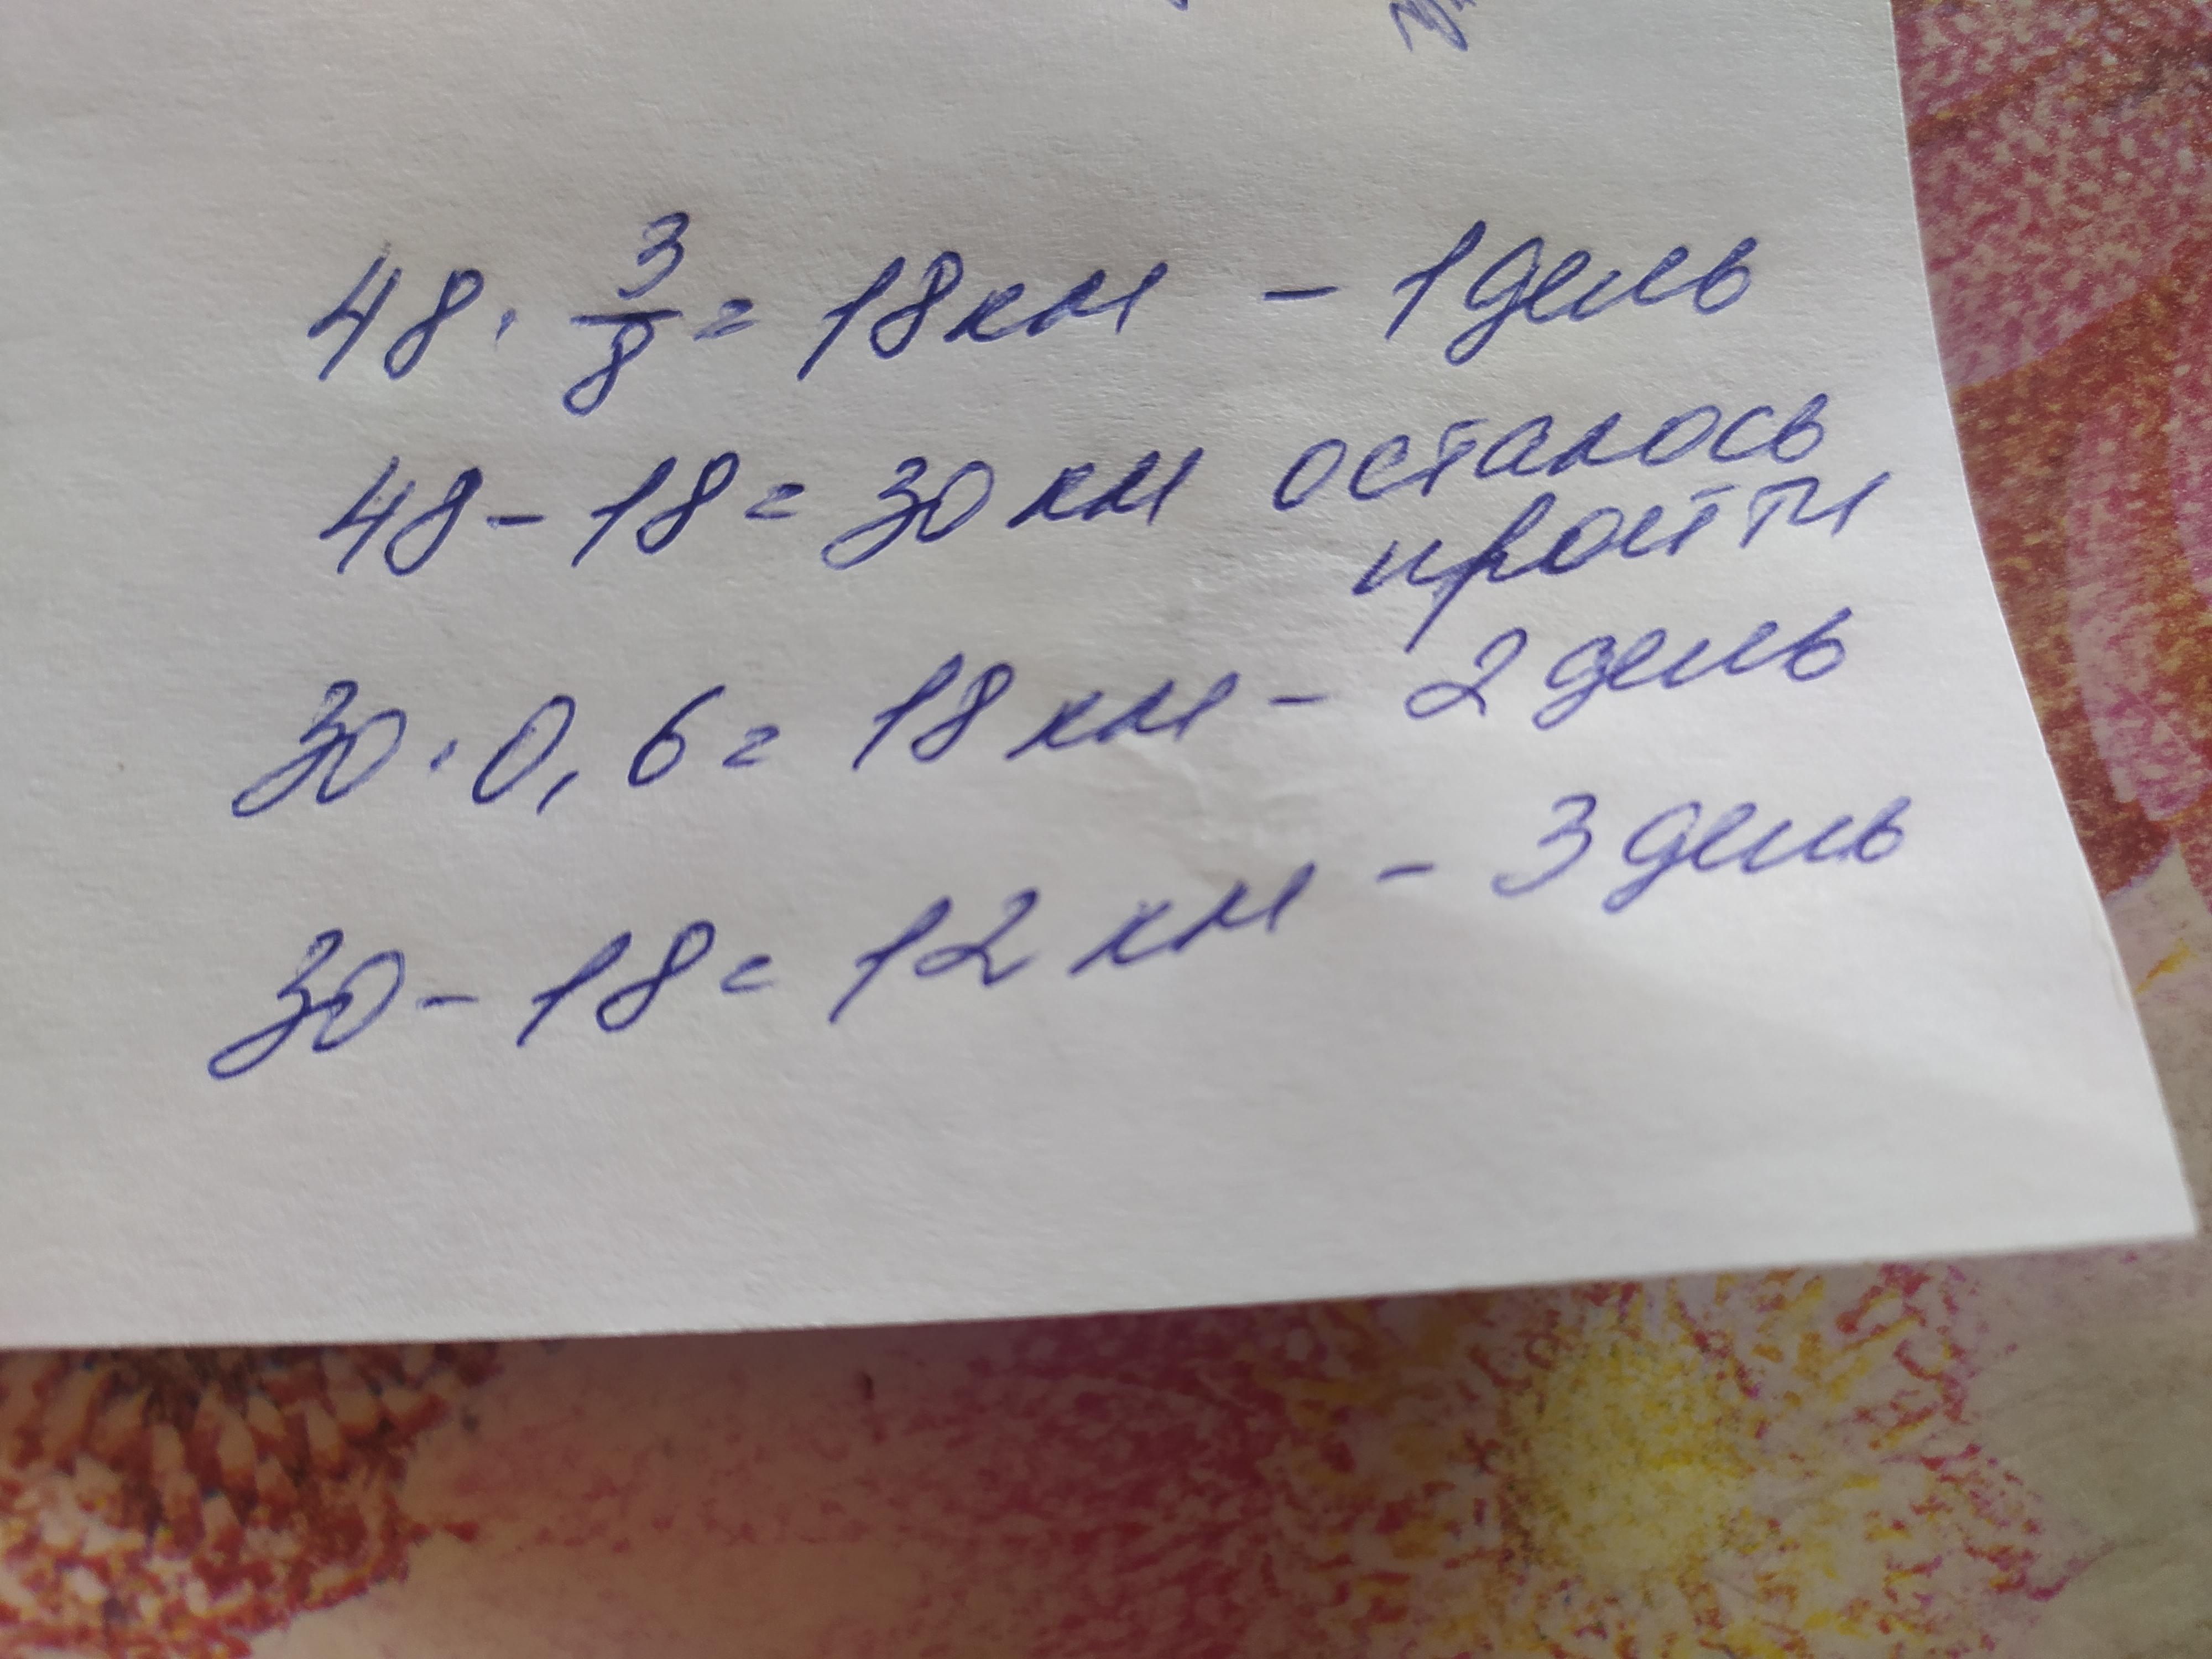 48 · 3/8 = 18 км - 1 день
48 - 18 = 30 км осталось
пройти
30 · 0,6 = 18 км - 2 день
30 - 18 = 12 км - 3 день